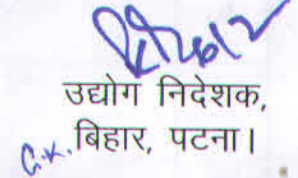 उद्योग निदेशक,
G.K. बिहार, पटना।